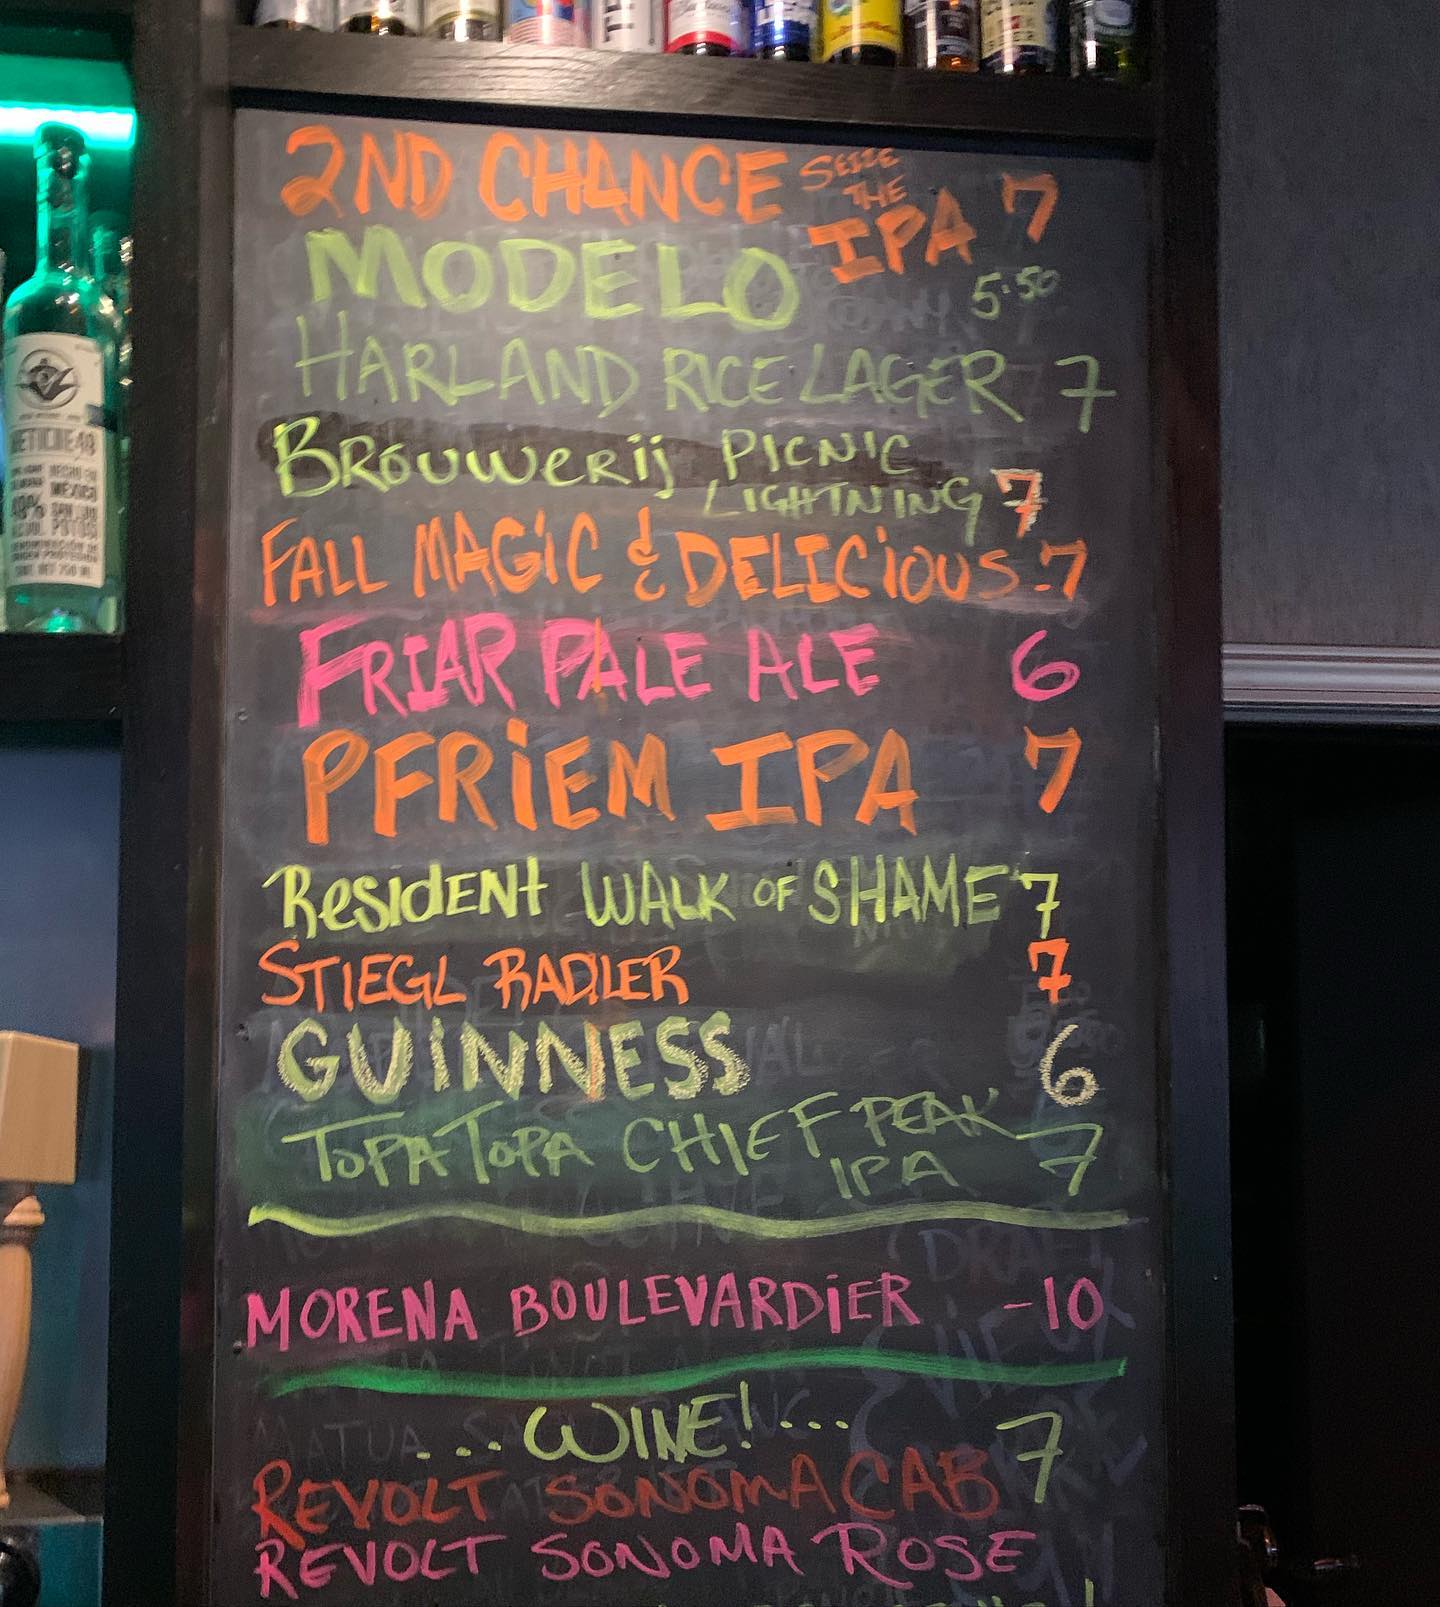 2ND CHANCE SEIZE THE IPA 7
MODELO 5.50
HARLAND RICE LAGER 7
BROUWERIJ PICNIC
LIGHTNING 7
FALL MAGIC & DELICIOUS 7
FRIAR PALE ALE 6
PFRIEM IPA 7
RESIDENT WALK OF SHAME 7
STIEGL RADLER 7
GUINNESS 6
TOPA TOPA CHIEF PEAK
IPA 7
MORENA BOULEVARDIER -10
...WINE!... 7
REVOLT SONOMA CAB
REVOLT SONOMA ROSE
MEXICO